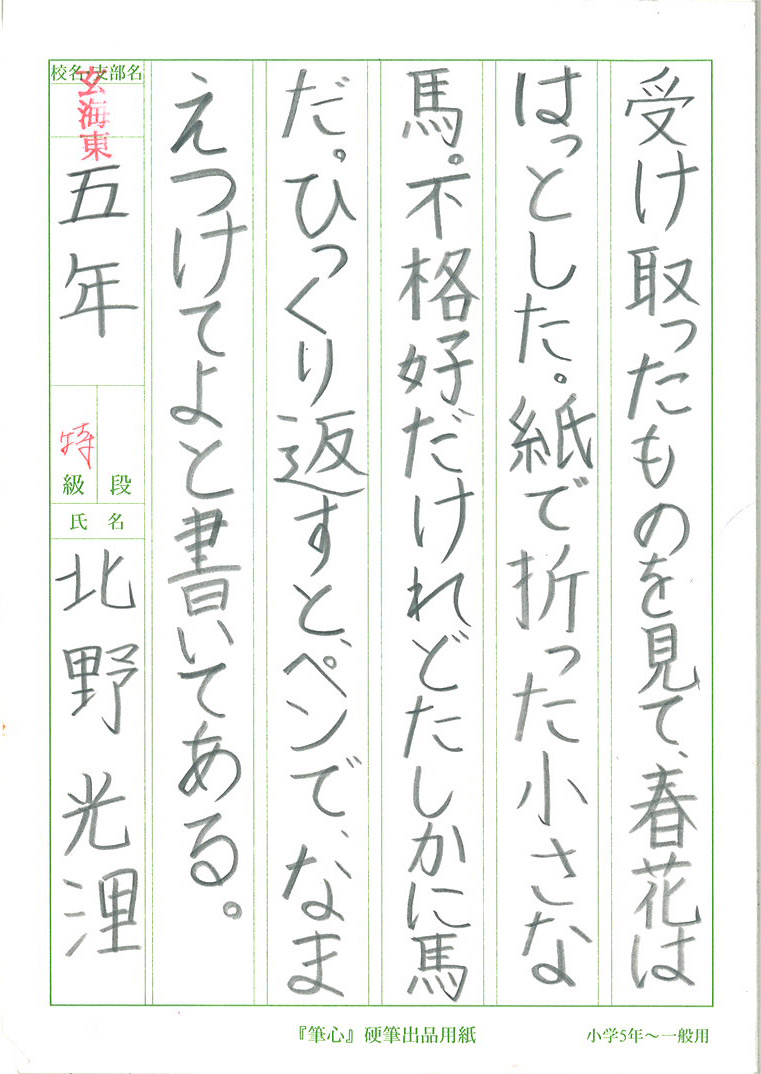 受け取ったものを見て、春花は
はっとした。紙で折った小さな
馬。不格好だけれどたしかに馬
だ。ひっくり返すと、ペンで、なま
えつけてよと書いてある。
校名・支部名
玄海東
五年
特
級
段
氏名
北野光浬
『筆心』硬筆出品用紙
小学5年〜一般用